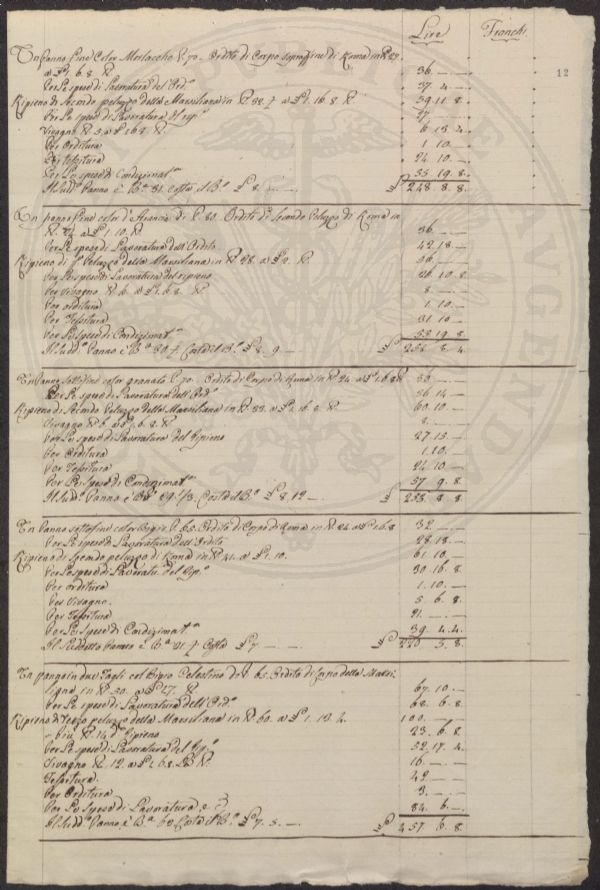 Lire Franchi
12
Un Panno fine Color Morlaccho P. 70. Ordito di Corpo soprafine di Roma in
a £ 1. 6. 8. 36. — —
Per le spese di Lavoratura del Ord.º 37. 4. —
Ripieno di Secondo peluzzo della Marsiliana in 32. a £ 1. 16. 8. 59. 11. 8.
Per le spese di Lavoratura del rip.º 27. — —
Vivagno 5. a £ 1. 6. 8. 6. 13. 4.
Per Orditura 1. 10. —
Per tessitura 24. 10. —
Per le spese di Condizimat.ª 55. 19. 8.
Il Sudd.º Panno è B.ª 31. costa il B.º £ 8. — — £ 248. 8. 8.
Un panno fine color d'Arancio di P. 80. Ordito di Secondo Peluzzo di Roma in
24. a £ 1. 10. 36. — —
Per le spese di Lavoratura dell'Ordito 42. 18. —
Ripieno di p.º Peluzzo della Marsiliana in 28. a £ 2. 56. — —
Per le spese di Lavoratura del ripieno 26. 10. 8.
Per vivagno 6. a £ 1. 6. 8. 8. — —
Per orditura 1. 10. —
Per Tessitura 31. 10. —
Per le spese di Condizimat.ª 53. 19. 8.
Il Sudd.º Panno è B.ª 30 Costa il B.º £ 8. 9 — £ 256. 8. 4.
Un Panno sottofine color granato P. 70. Ordito di Corpo di Roma in 24. a £ 1. 6. 8 36 — —
Per le spese di Lavoratura dell'Ord.º 36 14 —
Ripieno di Secondo Peluzzo della Marsiliana in 33. a £ 1. 16. 8. 60. 10 —
Vivagno 6. a £ 1. 6. 8. 8. — —
Per le spese di Lavoratura del Ripieno 27. 15. —
Per Orditura 1. 10. —
Per Tessitura 24 10 —
Per le spese di Condizimat.ª 57 9. 8.
Il Sudd.º Panno è B.ª 29. 1/3. Costa il B.º £ 8. 12 — £ 252. 8 8
Un Panno sottofine color Bigio P. 65. Ordito di Corpo di Roma in 24. a £ 1. 6. 8 32 — —
Per le spese di Lavoratura dell'Ordito 28. 18. —
Ripieno di Secondo peluzzo di Roma in 41. a £ 1. 10. 61. 10 —
Per le spese di Lavoratu. del Rip.º 30. 16. 8.
Per orditura 1. 10. —
Per vivagno. 5 6. 8.
Per Tessitura 21. — —
Per le spese di Condizimat.ª 39. 4. 4.
Il Suddetto Panno è B.ª 31 Costa £ 7 — — £ 220 5. 8
Un panno in due Tagli col Bigio Celestino di P. 65. Ordito di Corpo della Marsi.
liana in 50. a £ 1. 7. 67. 10. —
Per le spese di Lavoratura dell'Ord.º 68. 6. 8.
Ripieno di Terzo peluzzo della Marsiliana in 60. a £ 1. 13. 4. 100. — —
più 14 Ripieno 23. 6. 8
Per le spese di Lavoratura del Rip.º 52. 17. 4.
Vivagno 12. a £ 1. 6. 8. 16. — —
Tessitura. 42 — —
Per Orditura 3. — —
Per le Spese di Lavoratura, e 84. 6. —
Il Sudd.º Panno, è B.ª 63 Costa il B.º £ 7. 5. — £ 457 6. 8.